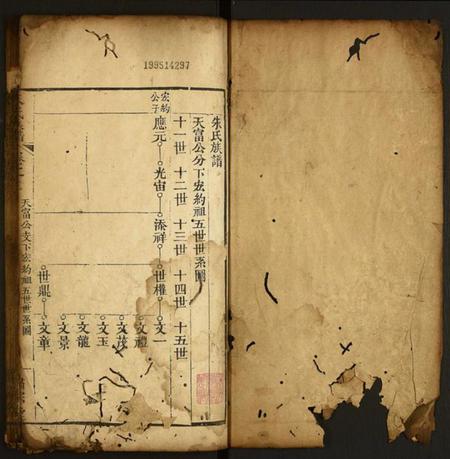 199514297
朱氏族譜
天富公分下宏約祖五世世系圖
十一世 十二世 十三世 十四世 十五世
宏約公子
應元 光宙 添祥 世權 文一
文禮
文茂
文玉
文龍
文景
世鼎 文章
天富公支下宏約祖五世世系圖